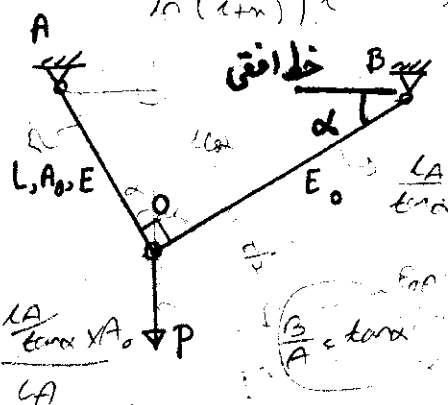 ln(1+n)
A
خط افقی
B
α
L, A₀, E
E₀
O
P
LA
tanα
LA/tanα × A₀
LA
B/A = tanα